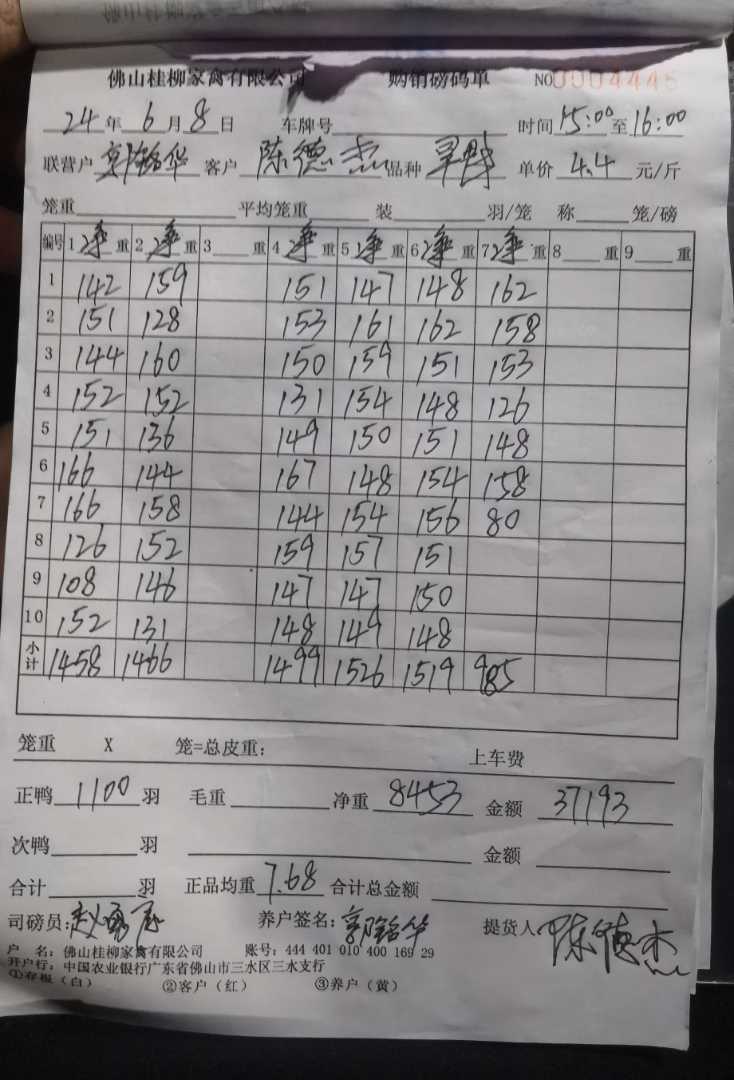 佛山桂柳家禽有限公司 购销磅码单 NO0004446
24年6月8日 车牌号 时间15:00至16:00
联营户 郭铭华 客户 陈德杰 品种 旱鸭 单价 4.4 元/斤
笼重 平均笼重 装 羽/笼 称 笼/磅
编号 1净重 2净重 3 重 4净重 5净重 6净重 7净重 8 重 9 重
1 142 159 151 147 148 162
2 151 128 153 161 162 158
3 144 160 150 159 151 153
4 152 152 131 154 148 126
5 151 136 149 150 151 148
6 166 144 167 148 154 158
7 166 158 144 154 156 80
8 126 152 159 157 151
9 108 146 147 147 150
10 152 131 148 149 148
小计 1458 1466 1499 1526 1519 985
笼重 X 笼=总皮重: 上车费
正鸭 1100 羽 毛重 净重 8453 金额 37193
次鸭 羽 金额
合计 羽 正品均重 7.68 合计总金额
司磅员: 养户签名: 郭铭华 提货人 陈德杰
户 名: 佛山桂柳家禽有限公司 账号: 444 401 010 400 169 29
开户行: 中国农业银行广东省佛山市三水区三水支行
①存根(白) ②客户(红) ③养户(黄)